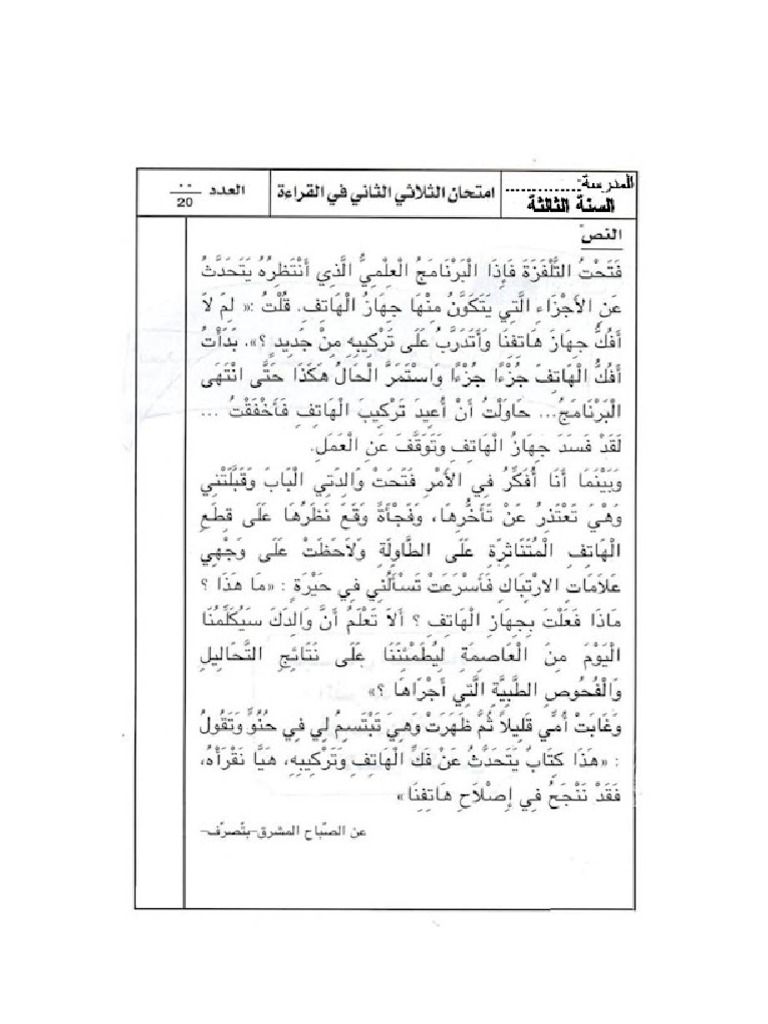 المدرسة:..............
السنة الثالثة
امتحان الثلاثي الثاني في القراءة
العدد ..
20
النص
فَتَحْتُ التَّلْفَزَةَ فَإِذَا الْبَرْنَامَجُ الْعِلْمِيُّ الَّذِي أَنْتَظِرُهُ يَتَحَدَّثُ
عَنِ الأَجْزَاءِ الَّتِي يَتَكَوَّنُ مِنْهَا جِهَازُ الْهَاتِفِ. قُلْتُ :« لِمَ لاَ
أَفُكُّ جِهَازَ هَاتِفِنَا وَأَتَدَرَّبُ عَلَى تَرْكِيبِهِ مِنْ جَدِيدٍ ؟». بَدَأْتُ
أَفُكُّ الْهَاتِفَ جُزْءًا جُزْءًا وَاسْتَمَرَّ الْحَالُ هَكَذَا حَتَّى انْتَهَى
الْبَرْنَامَجُ... حَاوَلْتُ أَنْ أُعِيدَ تَرْكِيبَ الْهَاتِفِ فَأَخْفَقْتُ ...
لَقَدْ فَسَدَ جِهَازُ الْهَاتِفِ وَتَوَقَّفَ عَنِ الْعَمَلِ.
وَبَيْنَمَا أَنَا أُفَكِّرُ فِي الأَمْرِ فَتَحَتْ وَالِدَتِي الْبَابَ وَقَبَّلَتْنِي
وَهْيَ تَعْتَذِرُ عَنْ تَأَخُّرِهَا، وَفَجْأَةً وَقَعَ نَظَرُهَا عَلَى قِطَعِ
الْهَاتِفِ الْمُتَنَاثِرَةِ عَلَى الطَّاوِلَةِ وَلاَحَظَتْ عَلَى وَجْهِي
عَلاَمَاتِ الاِرْتِبَاكِ فَأَسْرَعَتْ تَسْأَلُنِي فِي حَيْرَةٍ : «مَا هَذَا ؟
مَاذَا فَعَلْتَ بِجِهَازِ الْهَاتِفِ ؟ أَلاَ تَعْلَمُ أَنَّ وَالِدَكَ سَيُكَلِّمُنَا
الْيَوْمَ مِنَ الْعَاصِمَةِ لِيُطَمْئِنَنَا عَلَى نَتَائِجِ التَّحَالِيلِ
وَالْفُحُوصِ الطِّبِيَّةِ الَّتِي أَجْرَاهَا ؟»
وَغَابَتْ أُمِّي قَلِيلاً ثُمَّ ظَهَرَتْ وَهْيَ تَبْتَسِمُ لِي فِي حُنُوٍّ وَتَقُولُ
: «هَذَا كِتَابٌ يَتَحَدَّثُ عَنْ فَكِّ الْهَاتِفِ وَتَرْكِيبِهِ، هَيَّا نَقْرَأْهُ،
فَقَدْ نَنْجَحُ فِي إِصْلاَحِ هَاتِفِنَا»
عن الصّباح المشرق-بتصرّف-